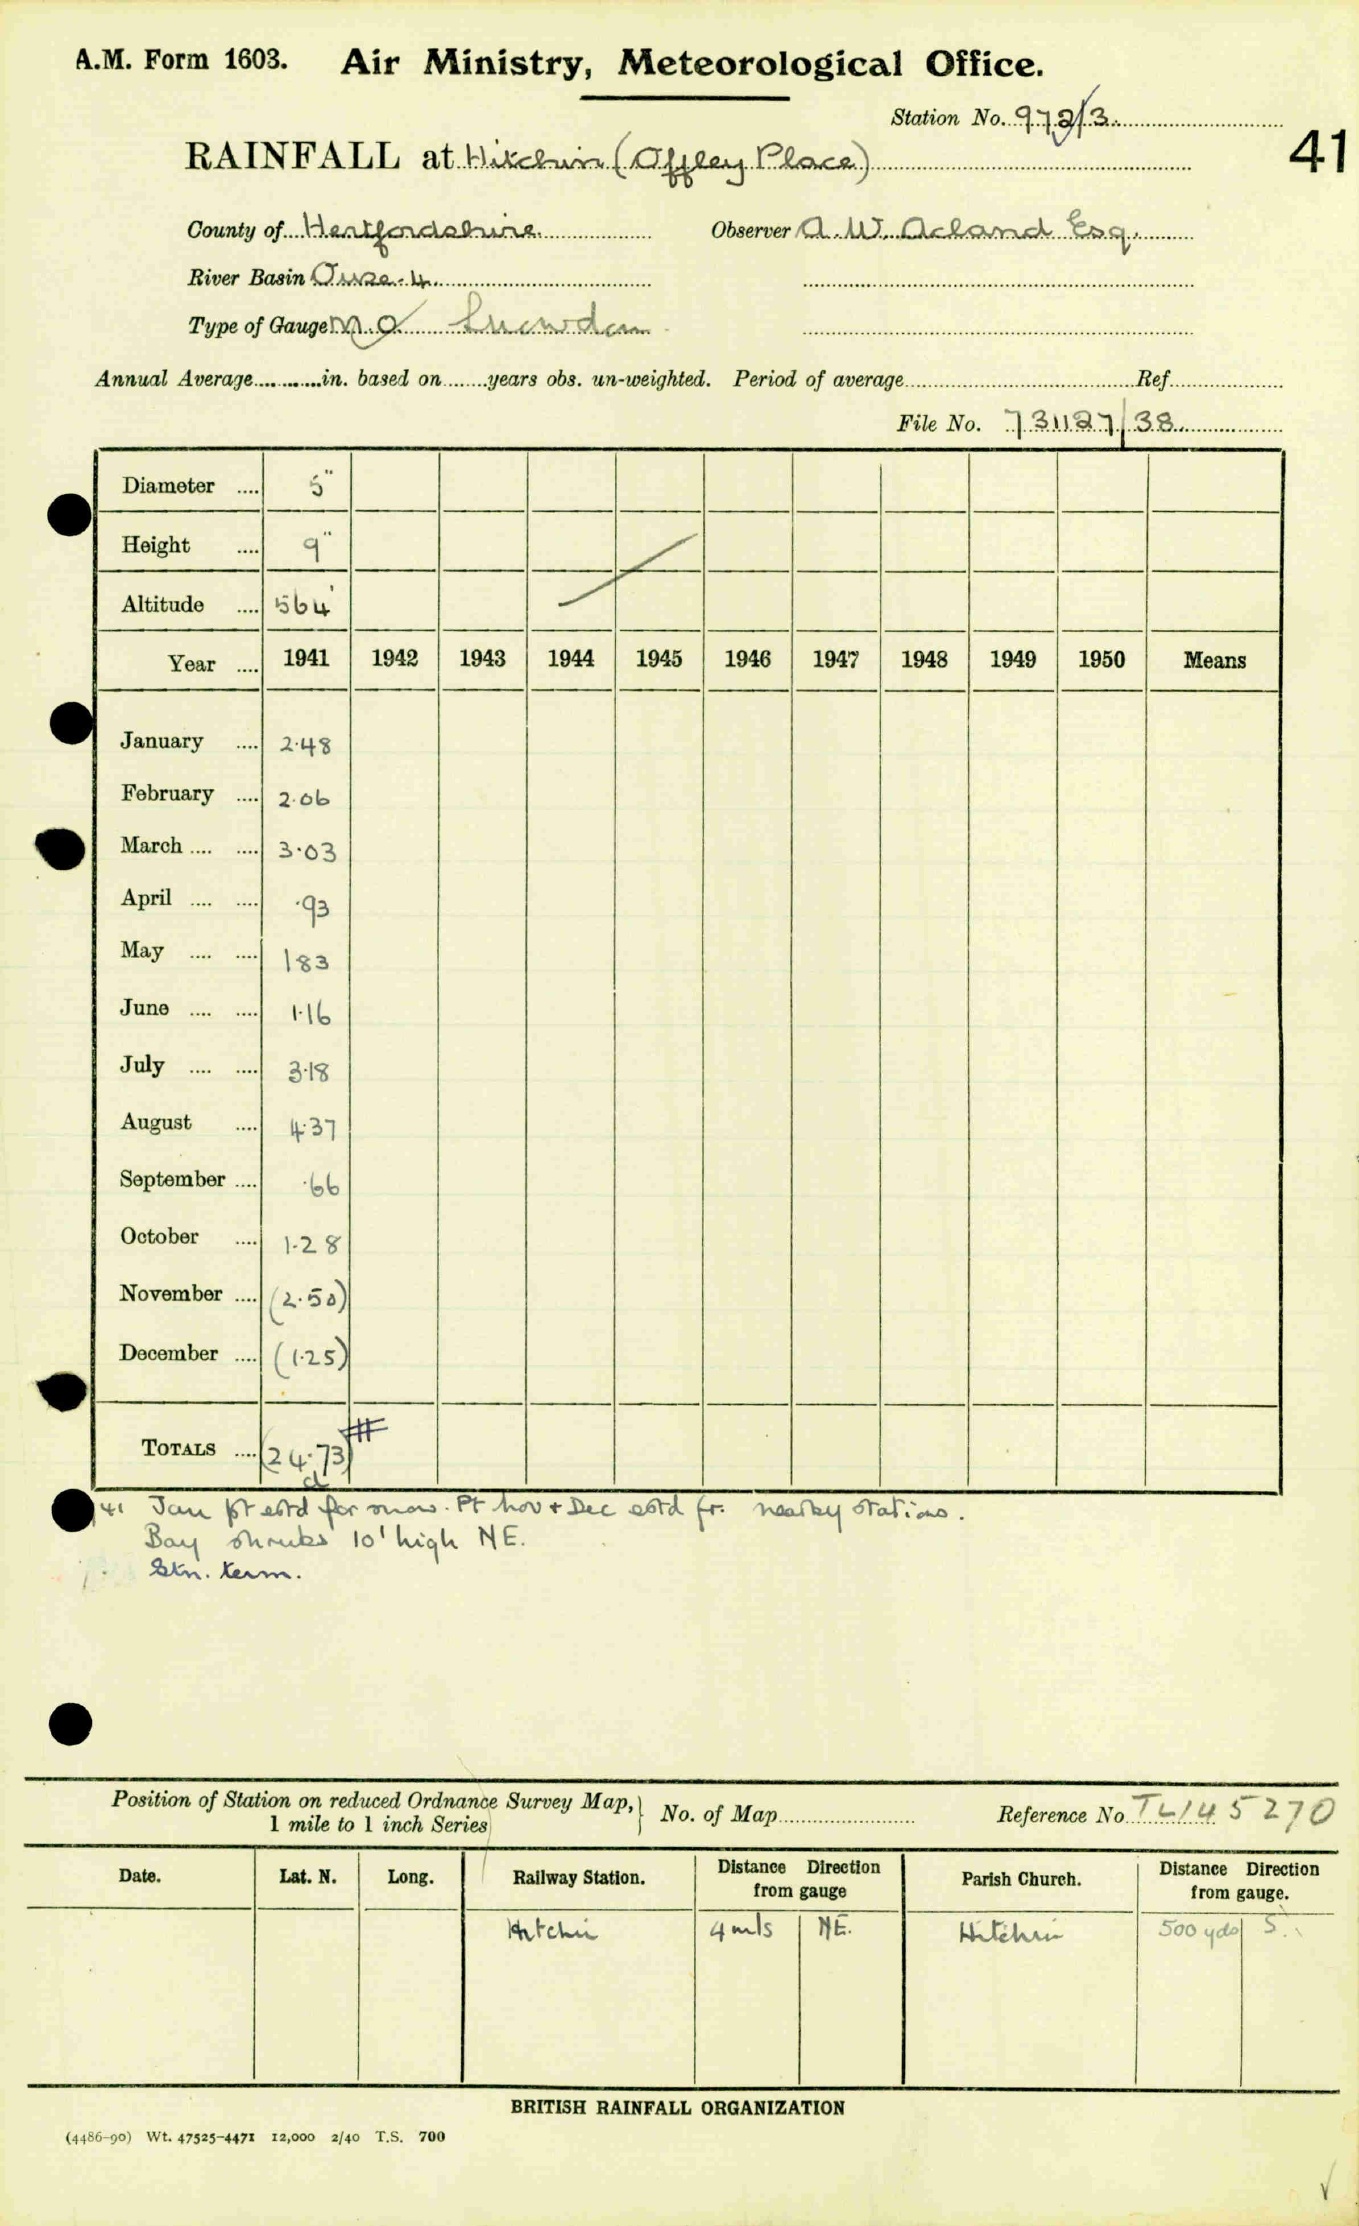 A.M. Form 1603. Air Ministry, Meteorological Office.
Station No. 972/3
41
RAINFALL at Hitchin (Offley Place)
County of Hertfordshire. Observer A. W. Acland Esq.
River Basin Ouse. 4.
Type of Gauge M.O. Snowdon
Annual Average............in. based on........years obs. un-weighted. Period of average........ Ref........
File No. 731127/38
Diameter .... 5"
Height .... 9"
Altitude .... 564'
Year .... 1941 1942 1943 1944 1945 1946 1947 1948 1949 1950 Means
January .... 2.48
February .... 2.06
March .... .... 3.03
April .... .... .93
May .... .... 183
June .... .... 1.16
July .... .... 3.18
August .... 4.37
September .... .66
October .... 1.28
November .... (2.50)
December .... (1.25)
TOTALS .... (24.73)
d
41 Jan pt estd for snow. Pt Nov + Dec estd fr. nearby stations.
Bay shrubs 10' high NE.
Stn. term.
Position of Station on reduced Ordnance Survey Map, } No. of Map........ Reference No. TL/145270
1 mile to 1 inch Series
Date. Lat. N. Long. Railway Station. Distance Direction from gauge Parish Church. Distance Direction from gauge.
Hitchin 4 mls NE. Hitchin 500 yds S.
BRITISH RAINFALL ORGANIZATION
(4486-90) Wt. 47525-4471 12,000 2/40 T.S. 700